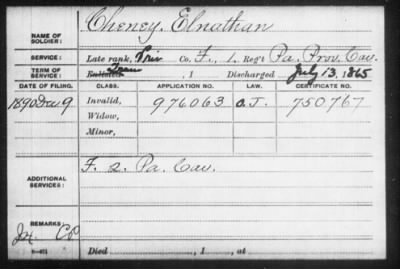 NAME OF SOLDIER: Cheney, Elnathan
SERVICE: Late rank, Priv Co. F, 1. Reg't Pa. Prov. Cav.
TERM OF SERVICE: Enlisted Tran , 1 Discharged July 13, 1865
DATE OF FILING. CLASS. APPLICATION NO. LAW. CERTIFICATE NO.
1890 Dec 9 Invalid, 976063 O.J. 750767
Widow,
Minor,
ADDITIONAL SERVICES: F. 2. Pa. Cav.
REMARKS:
Died , 1 , at